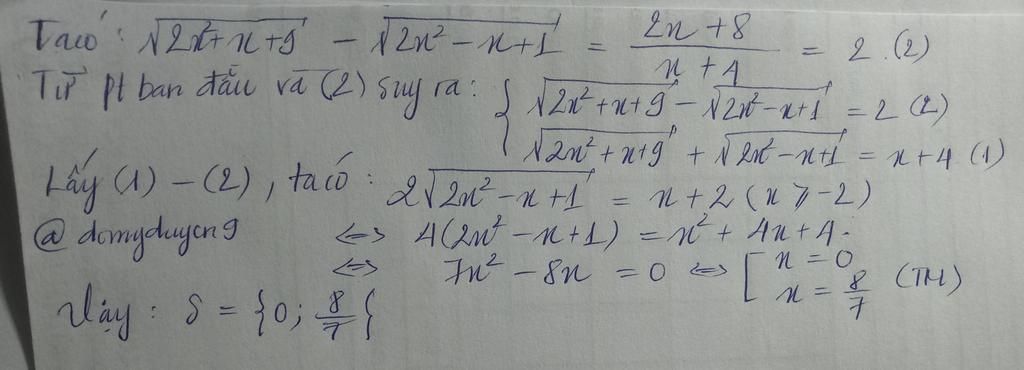 Ta có: √(2x²+x+9) - √(2x²-x+1) = (2x+8)/(x+4) = 2. (2)
Từ pt ban đầu và (2) suy ra: { √(2x²+x+9) - √(2x²-x+1) = 2 (2)
√(2x²+x+9) + √(2x²-x+1) = x+4 (1)
Lấy (1) - (2), ta có: 2√(2x²-x+1) = x+2 (x ≥ -2)
@domyduycn9 <=> 4(2x²-x+1) = x²+4x+4.
<=> 7x²-8x = 0 <=> [ x=0
x=8/7 (TM)
Vậy: S = {0; 8/7}